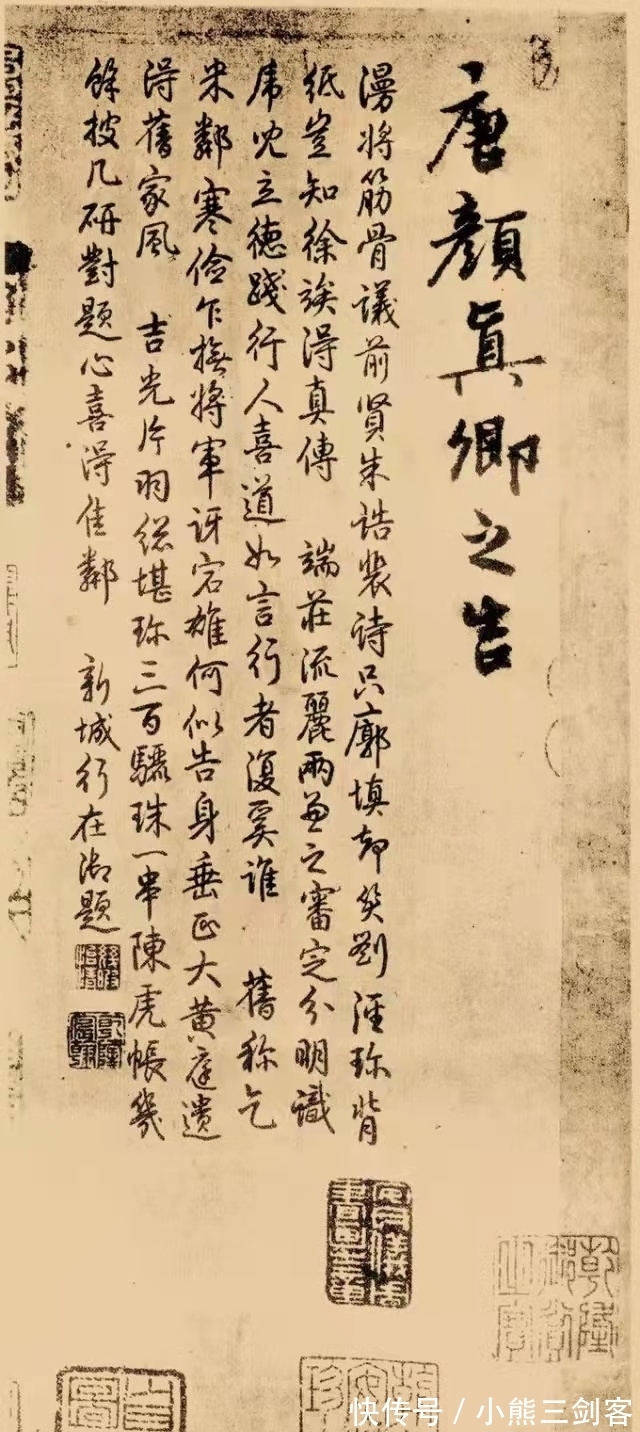 唐顏真卿之告
漫將筋骨議前賢朱誥裴詩只廓填却笑劉涇珎背
紙豈知徐誒得真傳 端莊流麗兩兼之審定分明識
席兕立德踐行人喜道如言行者復奚誰 舊称乞
米鄰寒儉乍撫將軍訝宕雄何似告身垂正大黄庭遺
得舊家風 吉光片羽総堪珎三百驪珠一串陳虎帳幾
餘披几研對題心喜得佳鄰 新城行在御題
乾隆宸翰
快传号 / 小熊三剑客